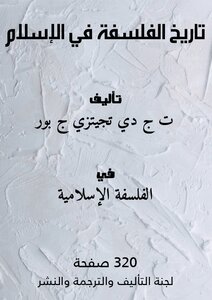 تاريخ الفلسفة في الإسلام
تأليف
ت ج دي تجيتزي ج بور
في
الفلسفة الإسلامية
320 صفحة
لجنة التأليف والترجمة والنشر